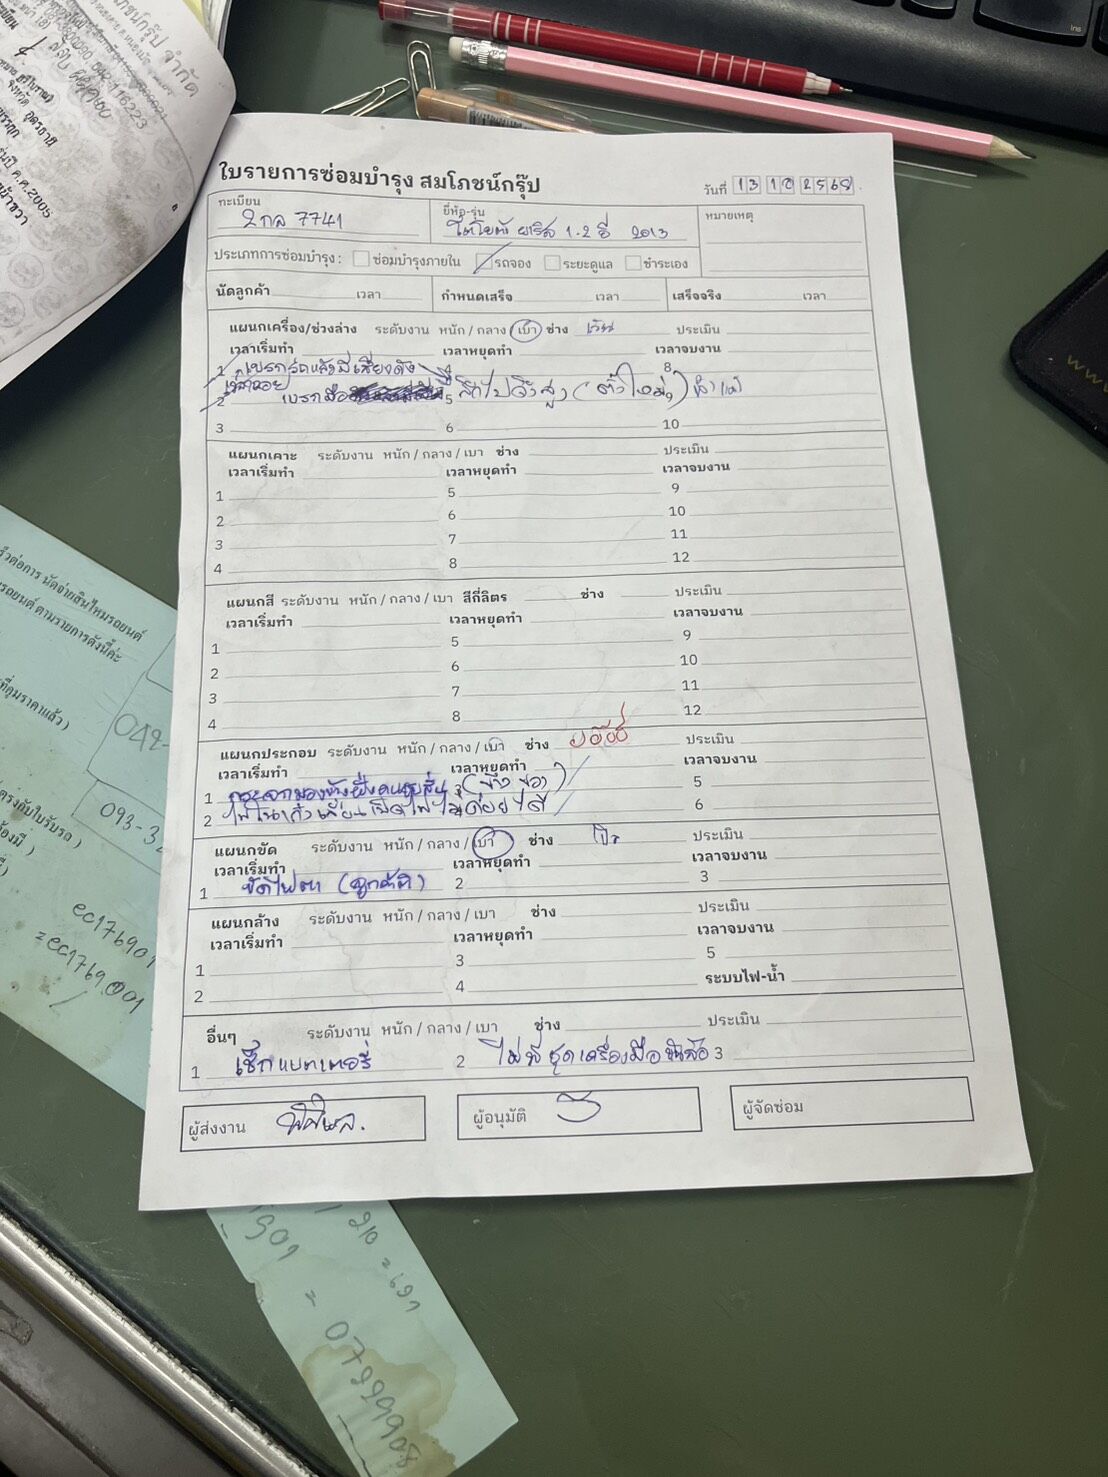 ใบรายการซ่อมบำรุง สมโภชน์กรุ๊ป
วันที่ 13 10 2568
ทะเบียน 2กล 7741
ยี่ห้อ-รุ่น โตโยต้า ยาริส 1.2 อี 2013
หมายเหตุ
ประเภทการซ่อมบำรุง : ซ่อมบำรุงภายใน รถจอง ระยะดูแล ชำระเอง
นัดลูกค้า เวลา กำหนดเสร็จ เวลา เสร็จจริง เวลา
แผนกเครื่อง/ช่วงล่าง ระดับงาน หนัก / กลาง / เบา ช่าง ประเมิน
เวลาเริ่มทำ เวลาหยุดทำ เวลาจบงาน
1 เบรกรถแล้วมีเสียงดัง 4 8
2 เบรกมือ 5 9
3 6 10
แผนกเคาะ ระดับงาน หนัก / กลาง / เบา ช่าง ประเมิน
เวลาเริ่มทำ เวลาหยุดทำ เวลาจบงาน
1 5 9
2 6 10
3 7 11
4 8 12
แผนกสี ระดับงาน หนัก / กลาง / เบา สีกี่ลิตร ช่าง ประเมิน
เวลาเริ่มทำ เวลาหยุดทำ เวลาจบงาน
1 5 9
2 6 10
3 7 11
4 8 12
แผนกประกอบ ระดับงาน หนัก / กลาง / เบา ช่าง ประเมิน
เวลาเริ่มทำ เวลาหยุดทำ เวลาจบงาน
1 กระจกมองข้างฝั่งคนขับสั่น 3 (ข้างขวา) 5
2 ไม่ค่อยได้ 6
แผนกขัด ระดับงาน หนัก / กลาง / เบา ช่าง ประเมิน
เวลาเริ่มทำ เวลาหยุดทำ เวลาจบงาน
1 ขัดไฟตา 2 3
แผนกล้าง ระดับงาน หนัก / กลาง / เบา ช่าง ประเมิน
เวลาเริ่มทำ เวลาหยุดทำ เวลาจบงาน
1 3 5
2 4 ระบบไฟ-น้ำ
อื่นๆ ระดับงาน หนัก / กลาง / เบา ช่าง ประเมิน
1 เช็กแบตเตอรี่ 2 ไม่มีชุดเครื่องมือ 3
ผู้ส่งงาน
ผู้อนุมัติ
ผู้จัดซ่อม
042-
093-3
ec176901
=ec1769001